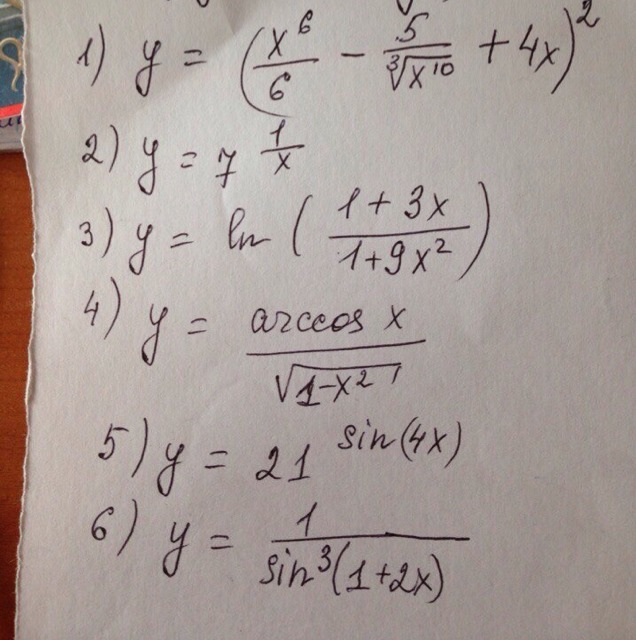 1) y = (x^6/6 − 5/∛(x^10) + 4x)^2
2) y = 7^(1/x)
3) y = ln ( (1 + 3x)/(1 + 9x^2) )
4) y = arccos x / √(1−x^2)
5) y = 21^(sin(4x))
6) y = 1 / sin^3(1+2x)